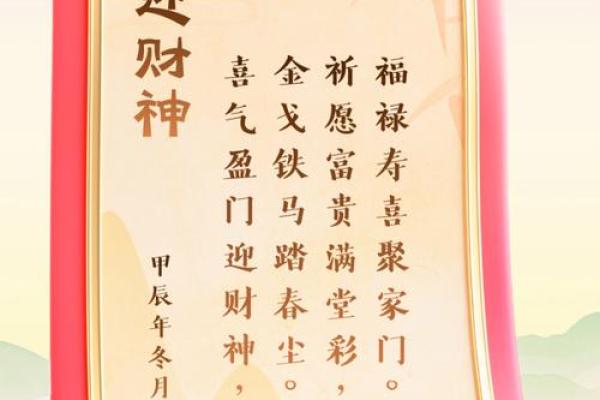 迎财神
喜气盈门迎财神，
金戈铁马踏春尘。
祈愿富贵满堂彩，
福禄寿喜聚家门。
甲辰年冬月